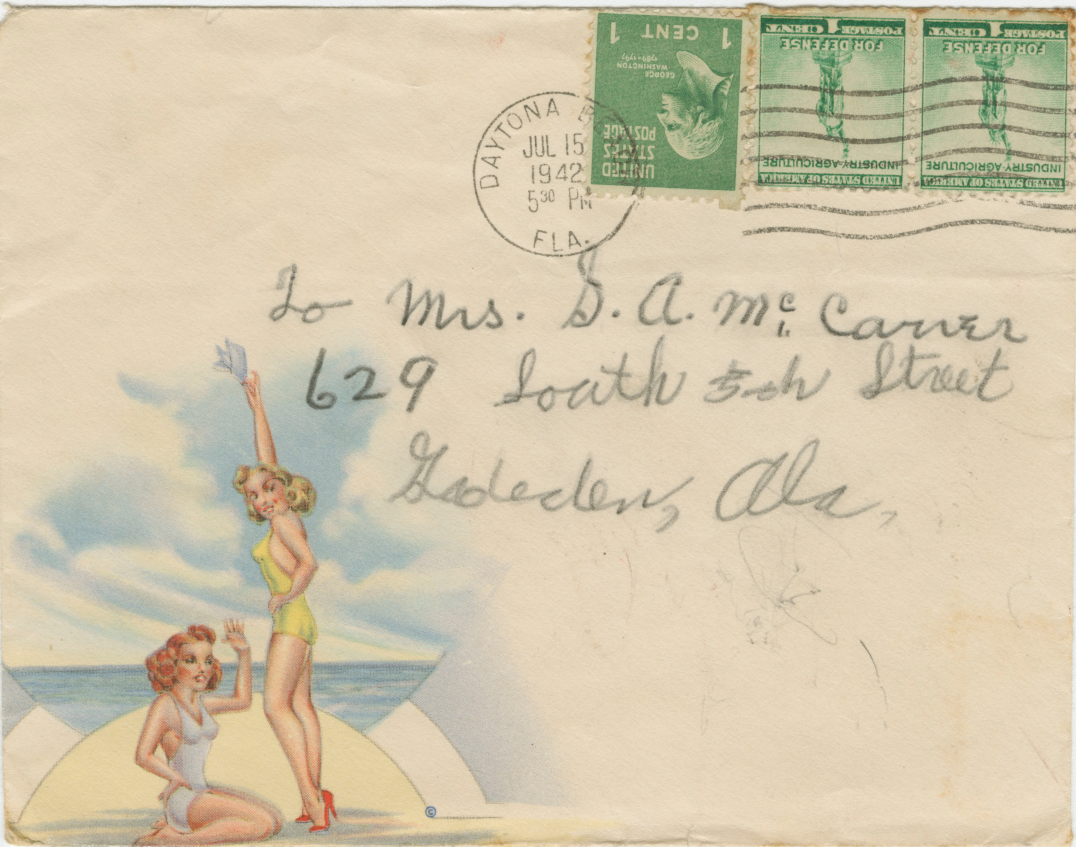 1 CENT 1
GEORGE
WASHINGTON
1789-1797
UNITED
STATES
POSTAGE
1
POSTAGE CENT
FOR DEFENSE
INDUSTRY-AGRICULTURE
UNITED STATES OF AMERICA
1
POSTAGE CENT
FOR DEFENSE
INDUSTRY-AGRICULTURE
UNITED STATES OF AMERICA
DAYTONA
JUL 15
1942
5 30 PM
FLA.
To Mrs. S. A. Mc. Carver
629 South 5th Street
Gadsden, Ala,
©